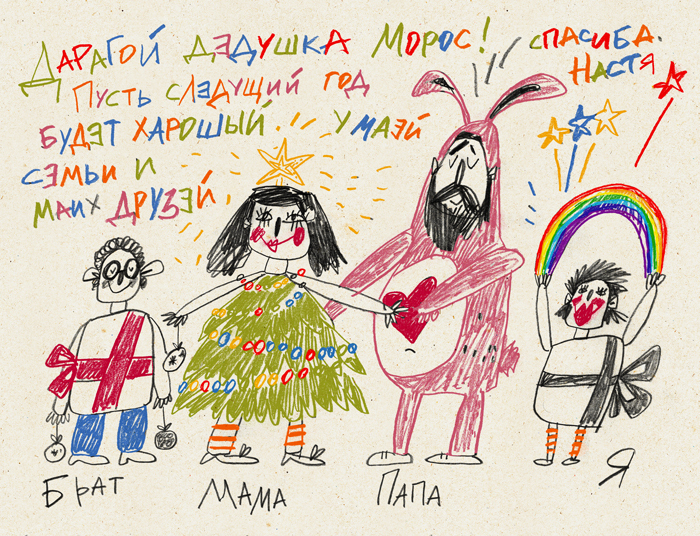 ДАРАГОЙ ДЕДУШКА МОРОС!
ПУСТЬ СЛЕДУЩИЙ ГОД
БУДЕТ ХАРОШЫЙ. У МАЕЙ
СЕМЬИ И
МАИХ ДРУЗЕЙ.
СПАСИБА.
НАСТЯ
БРАТ
МАМА
ПАПА
Я